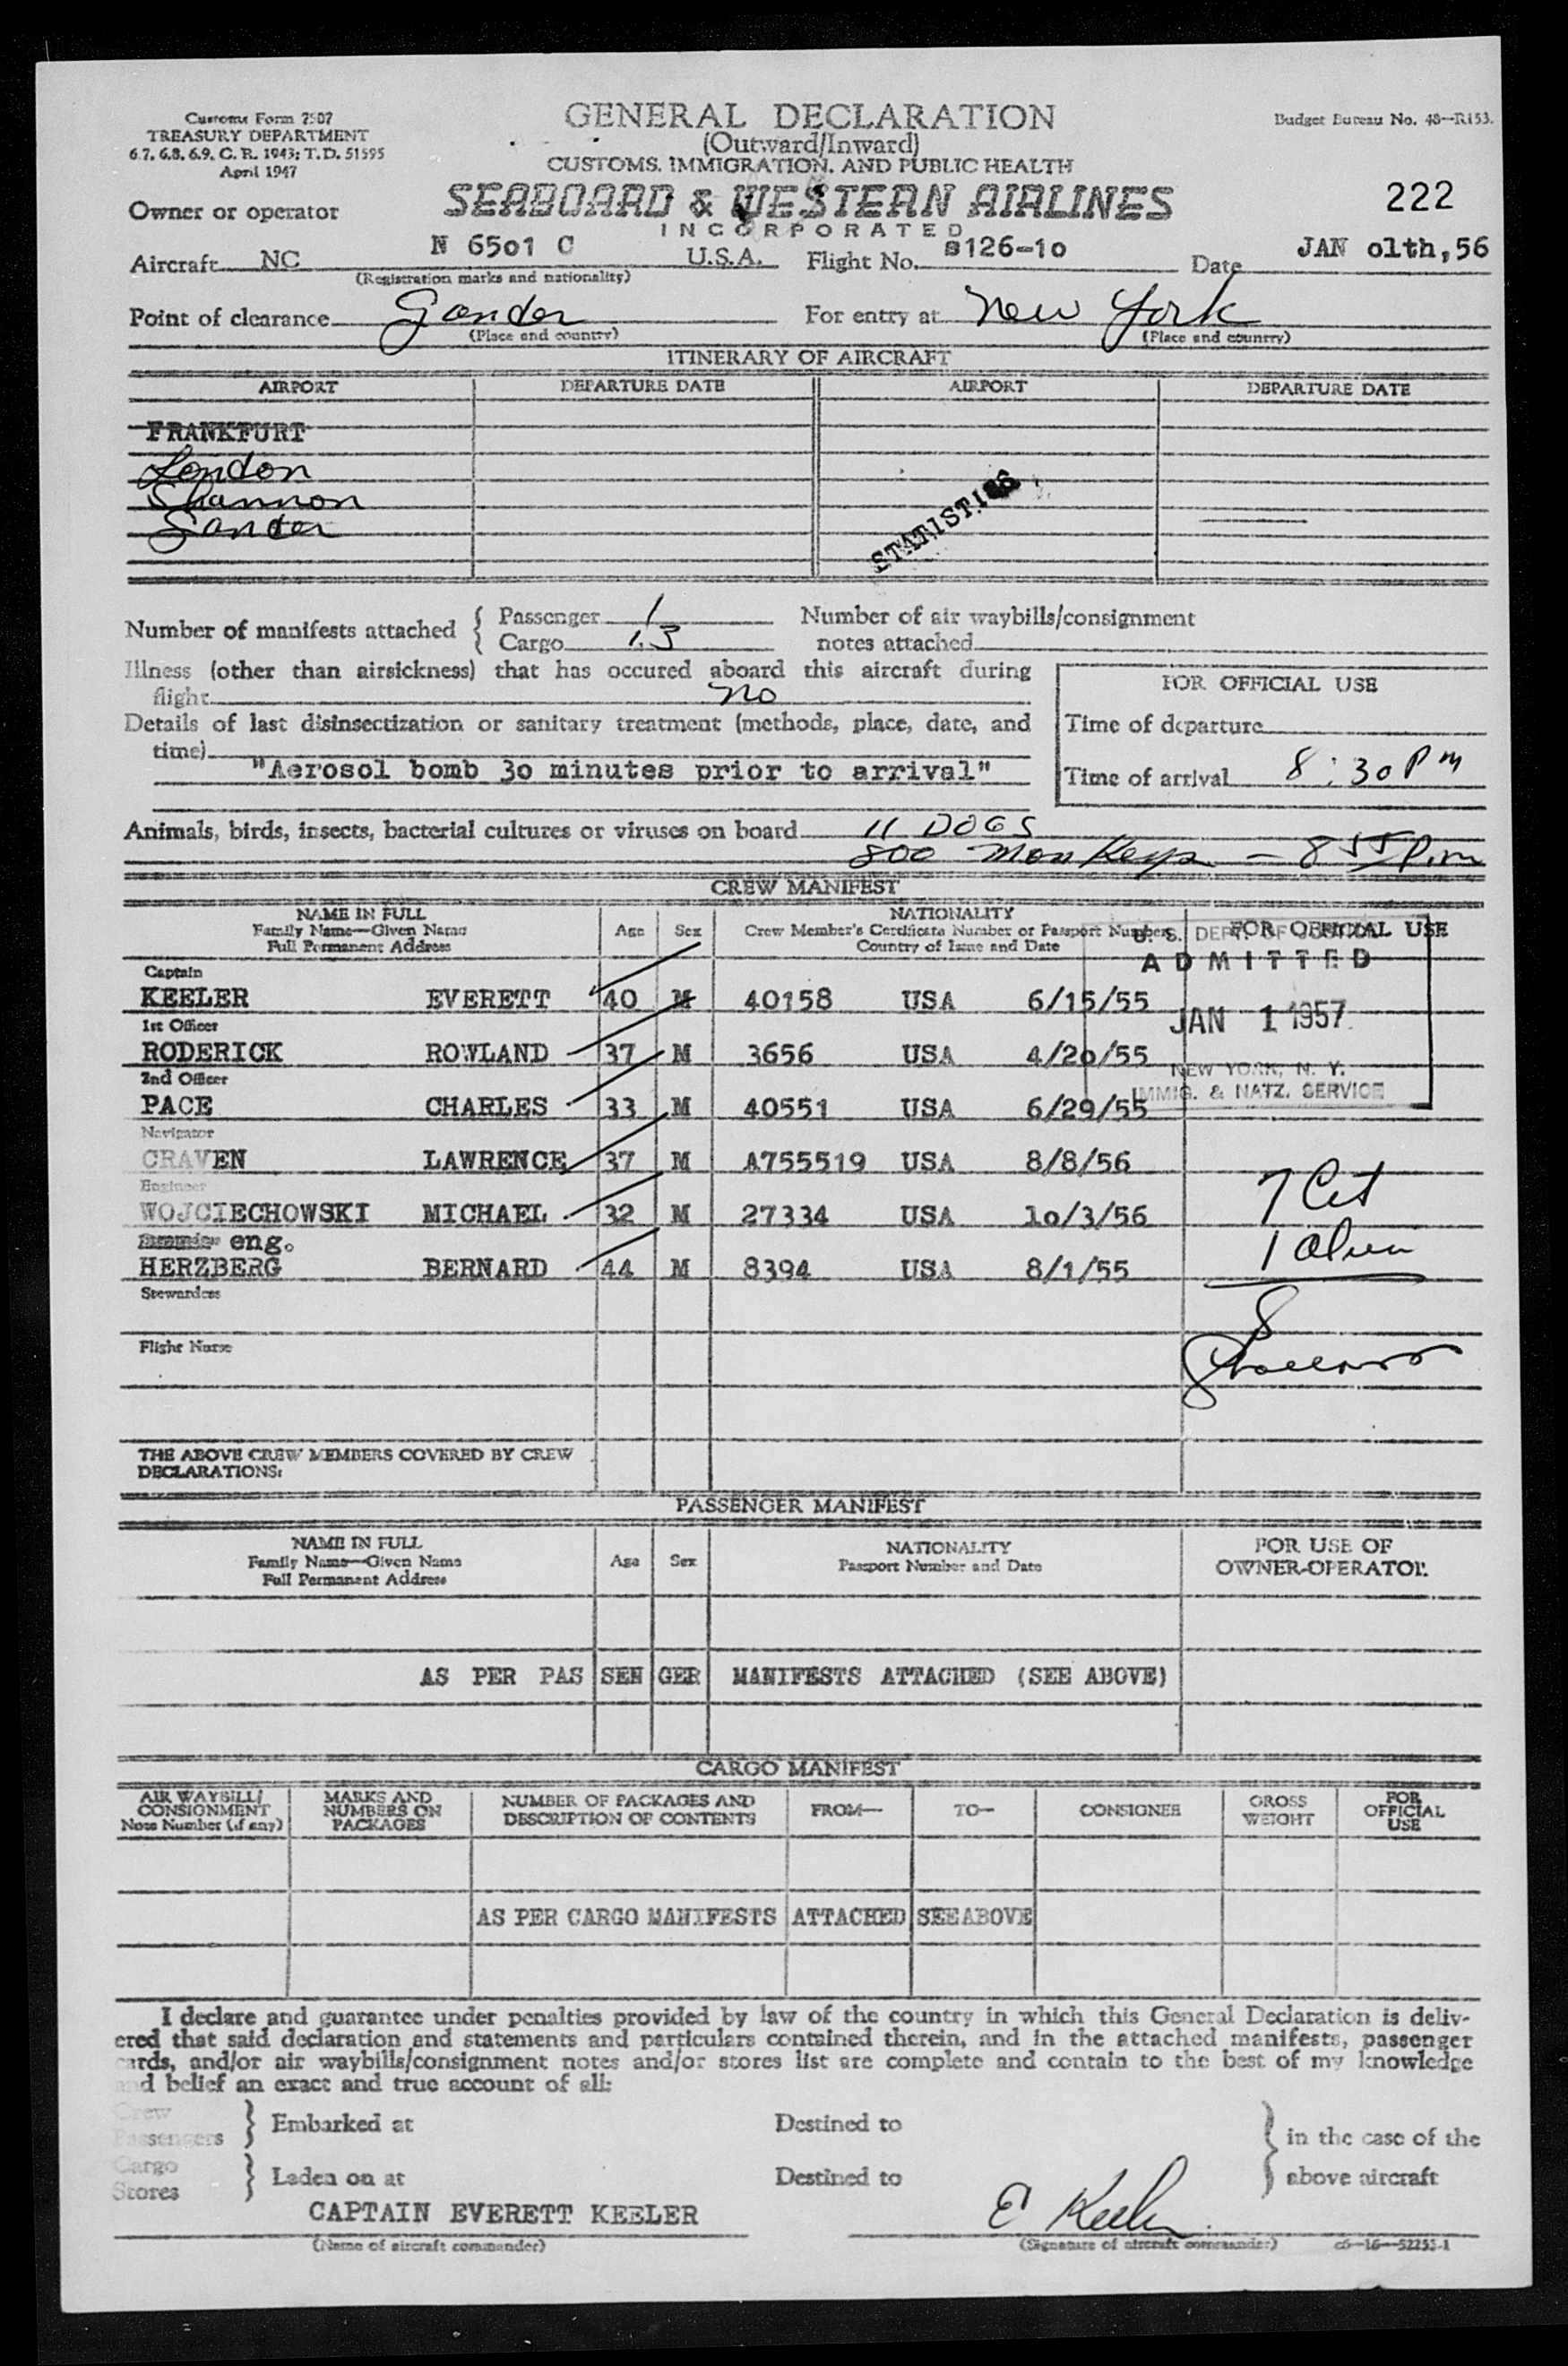 Customs Form 7507
TREASURY DEPARTMENT
6.7, 6.8, 6.9, C. R. 1943; T.D. 51595
April 1947
GENERAL DECLARATION
(Outward/Inward)
CUSTOMS, IMMIGRATION, AND PUBLIC HEALTH
Budget Bureau No. 48—R153.
Owner or operator SEABOARD & WESTERN AIRLINES
INCORPORATED
222
Aircraft NC N 6501 C U.S.A. Flight No. s126-1o Date JAN o1th,56
(Registration marks and nationality)
Point of clearance Gander For entry at New York
(Place and country) (Place and country)
ITINERARY OF AIRCRAFT
AIRPORT DEPARTURE DATE AIRPORT DEPARTURE DATE
FRANKFURT
London
Shannon
Gander
STATISTICS
Number of manifests attached { Passenger 1 Number of air waybills/consignment
Cargo 1.3 notes attached
Illness (other than airsickness) that has occured aboard this aircraft during
flight no
FOR OFFICIAL USE
Details of last disinsectization or sanitary treatment (methods, place, date, and
time)
Time of departure
"Aerosol bomb 3o minutes prior to arrival"
Time of arrival 8:30 PM
Animals, birds, insects, bacterial cultures or viruses on board 11 DOGS
800 Monkeys — 8 55 P.m
CREW MANIFEST
NAME IN FULL
Family Name—Given Name
Full Permanent Address
Age Sex
NATIONALITY
Crew Member's Certificate Number or Passport Number
Country of Issue and Date
FOR OFFICIAL USE
U. S. DEPT. OF
ADMITTED
JAN 1 1957
NEW YORK, N. Y.
IMMIG. & NATZ. SERVICE
Captain
KEELER EVERETT 40 M 40158 USA 6/15/55
1st Officer
RODERICK ROWLAND 37 M 3656 USA 4/2o/55
2nd Officer
PACE CHARLES 33 M 40551 USA 6/29/55
Navigator
CRAVEN LAWRENCE 37 M A755519 USA 8/8/56
Engineer
WOJCIECHOWSKI MICHAEL 32 M 27334 USA 1o/3/56
7 Cit
eng.
HERZBERG BERNARD 44 M 8394 USA 8/1/55
1 Alien
8
Stewardess
Flight Nurse
THE ABOVE CREW MEMBERS COVERED BY CREW
DECLARATIONS:
PASSENGER MANIFEST
NAME IN FULL
Family Name—Given Name
Full Permanent Address
Age Sex
NATIONALITY
Passport Number and Date
FOR USE OF
OWNER-OPERATOR
AS PER PAS SEN GER MANIFESTS ATTACHED (SEE ABOVE)
CARGO MANIFEST
AIR WAYBILL/
CONSIGNMENT
Note Number (if any)
MARKS AND
NUMBERS ON
PACKAGES
NUMBER OF PACKAGES AND
DESCRIPTION OF CONTENTS
FROM— TO— CONSIGNEE
GROSS
WEIGHT
FOR
OFFICIAL
USE
AS PER CARGO MANIFESTS ATTACHED SEEABOVE
I declare and guarantee under penalties provided by law of the country in which this General Declaration is deliv-
ered that said declaration and statements and particulars contained therein, and in the attached manifests, passenger
cards, and/or air waybills/consignment notes and/or stores list are complete and contain to the best of my knowledge
and belief an exact and true account of all:
Crew
Passengers } Embarked at Destined to } in the case of the
Cargo
Stores } Laden on at Destined to above aircraft
CAPTAIN EVERETT KEELER E Keeler
(Name of aircraft commander) (Signature of aircraft commander) c6—16—52253-1